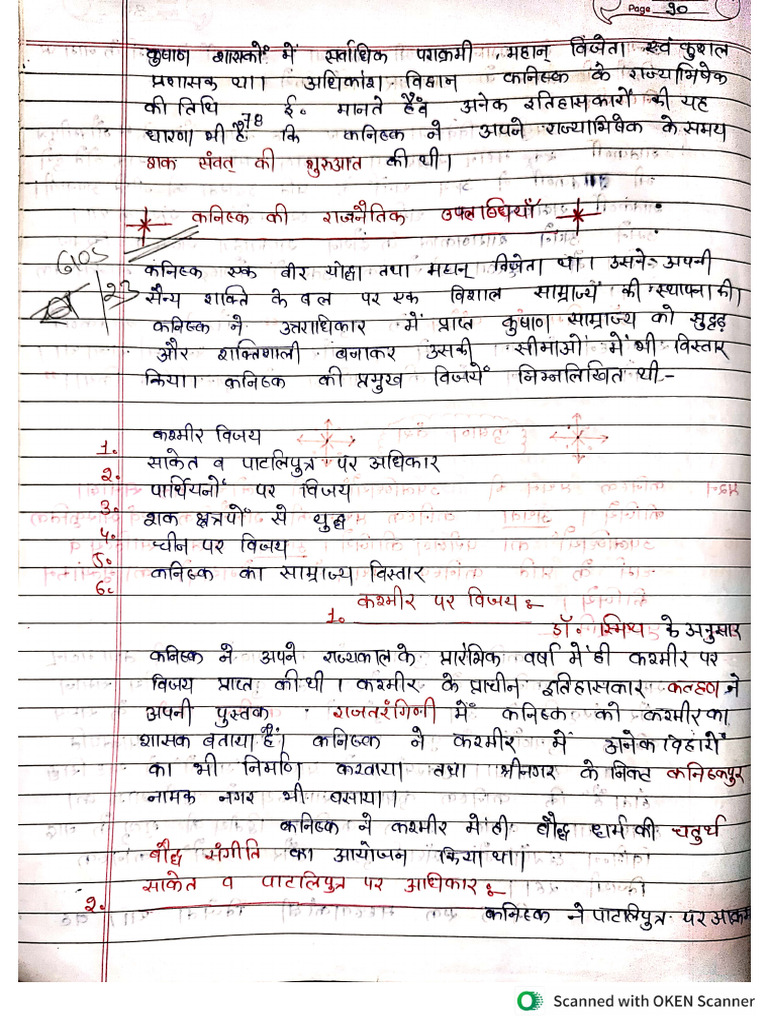 Page 20
कुषाण शासकों में सर्वाधिक पराक्रमी, महान् विजेता एवं कुशल
प्रशासक था। अधिकांश विद्वान कनिष्क के राज्याभिषेक
की तिथि 78 ई० मानते हैं व अनेक इतिहासकारों की यह
धारणा भी है कि कनिष्क ने अपने राज्याभिषेक के समय
शक संवत् की शुरुआत की थी।
कनिष्क की राजनैतिक उपलब्धियाँ
कनिष्क एक वीर योद्धा तथा महान् विजेता था। उसने अपनी
सैन्य शक्ति के बल पर एक विशाल साम्राज्य की स्थापना की।
23
कनिष्क ने उत्तराधिकार में प्राप्त कुषाण साम्राज्य को सुदृढ़
और शक्तिशाली बनाकर उसकी सीमाओं में भी विस्तार
किया। कनिष्क की प्रमुख विजयें निम्नलिखित थी-
1. कश्मीर विजय
2. साकेत व पाटलिपुत्र पर अधिकार
3. पार्थियनों पर विजय
4. शक क्षत्रपों से युद्ध
5. चीन पर विजय
6. कनिष्क का साम्राज्य विस्तार
1. कश्मीर पर विजय :-
डॉ. स्मिथ के अनुसार
कनिष्क ने अपने राज्यकाल के प्रारंभिक वर्षों में ही कश्मीर पर
विजय प्राप्त की थी। कश्मीर के प्राचीन इतिहासकार कल्हण ने
अपनी पुस्तक राजतरंगिनी में कनिष्क को कश्मीर का
शासक बताया है। कनिष्क ने कश्मीर में अनेक विहारों
का भी निर्माण करवाया तथा श्रीनगर के निकट कनिष्कपुर
नामक नगर भी बसाया।
कनिष्क ने कश्मीर में ही बौद्ध धर्म की चतुर्थ
बौद्ध संगीति का आयोजन किया था।
2. साकेत व पाटलिपुत्र पर अधिकार :-
कनिष्क ने पाटलिपुत्र पर आक्रम
Scanned with OKEN Scanner